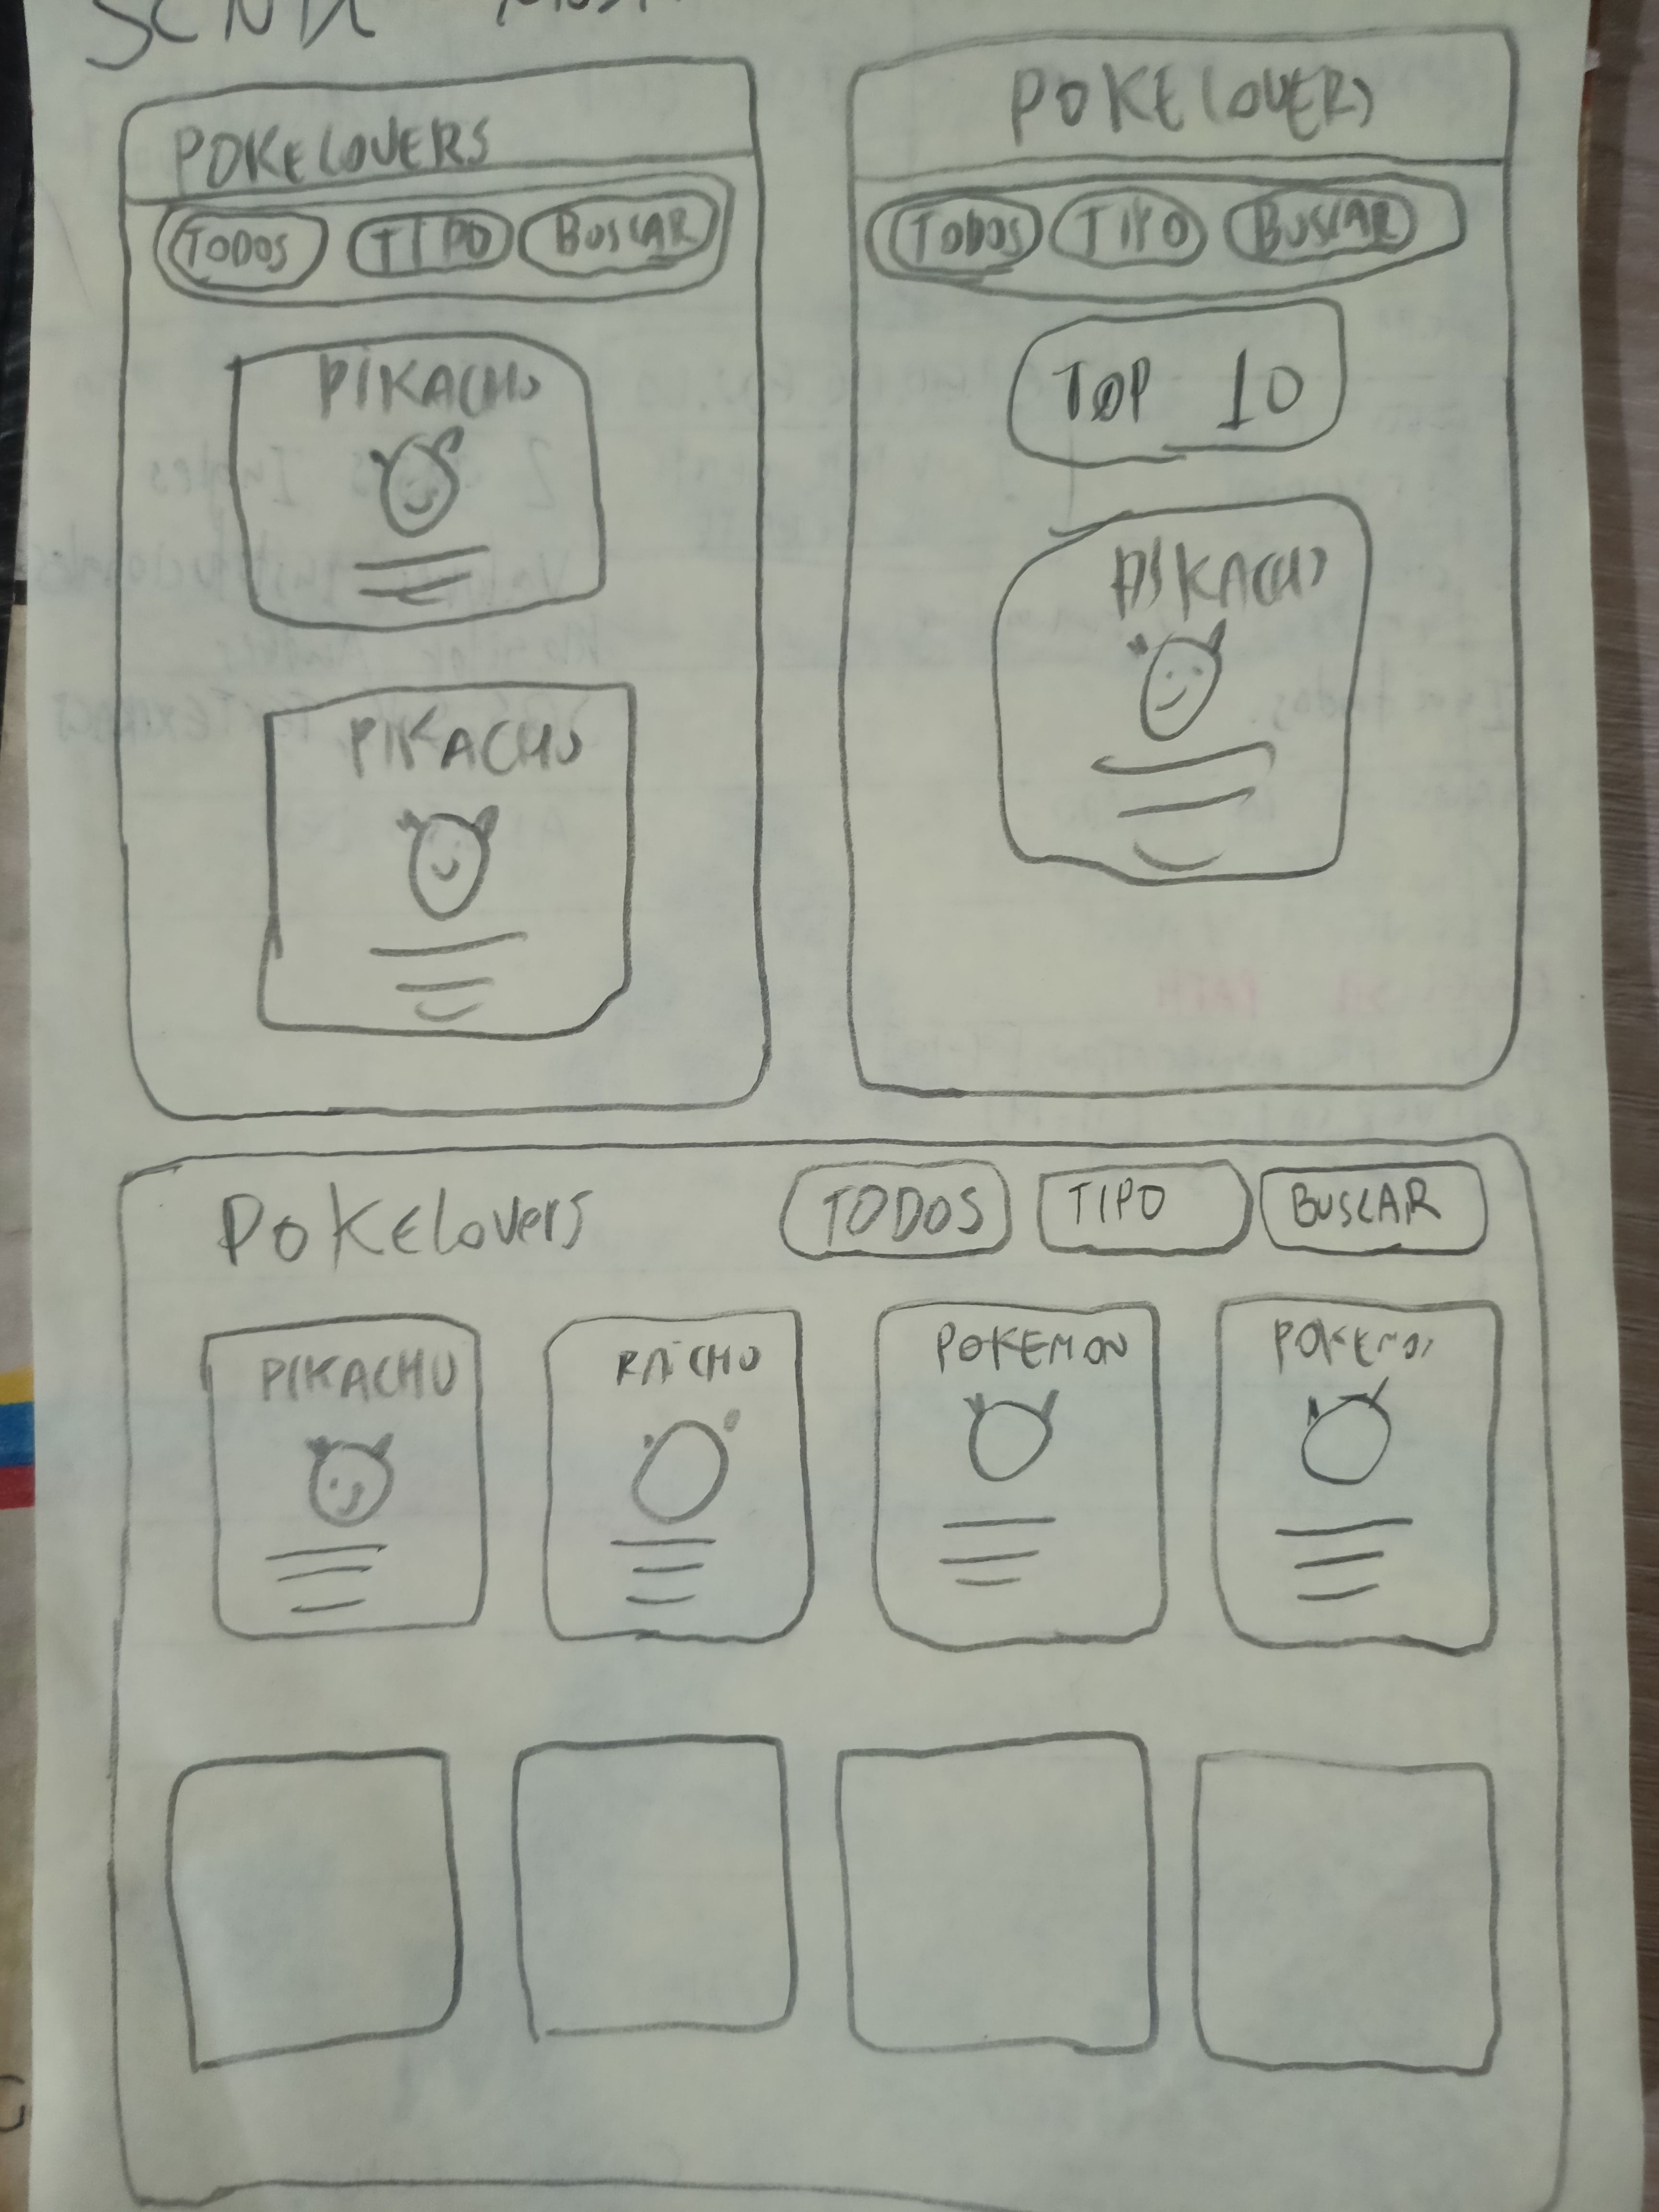 SCNA
POKELOVERS
TODOS TIPO BUSCAR
PIKACHU
PIKACHU
POKELOVERS
TODOS TIPO BUSCAR
TOP 10
PIKACHU
POKELOVERS
TODOS TIPO BUSCAR
PIKACHU RAICHU POKEMON POKEMON